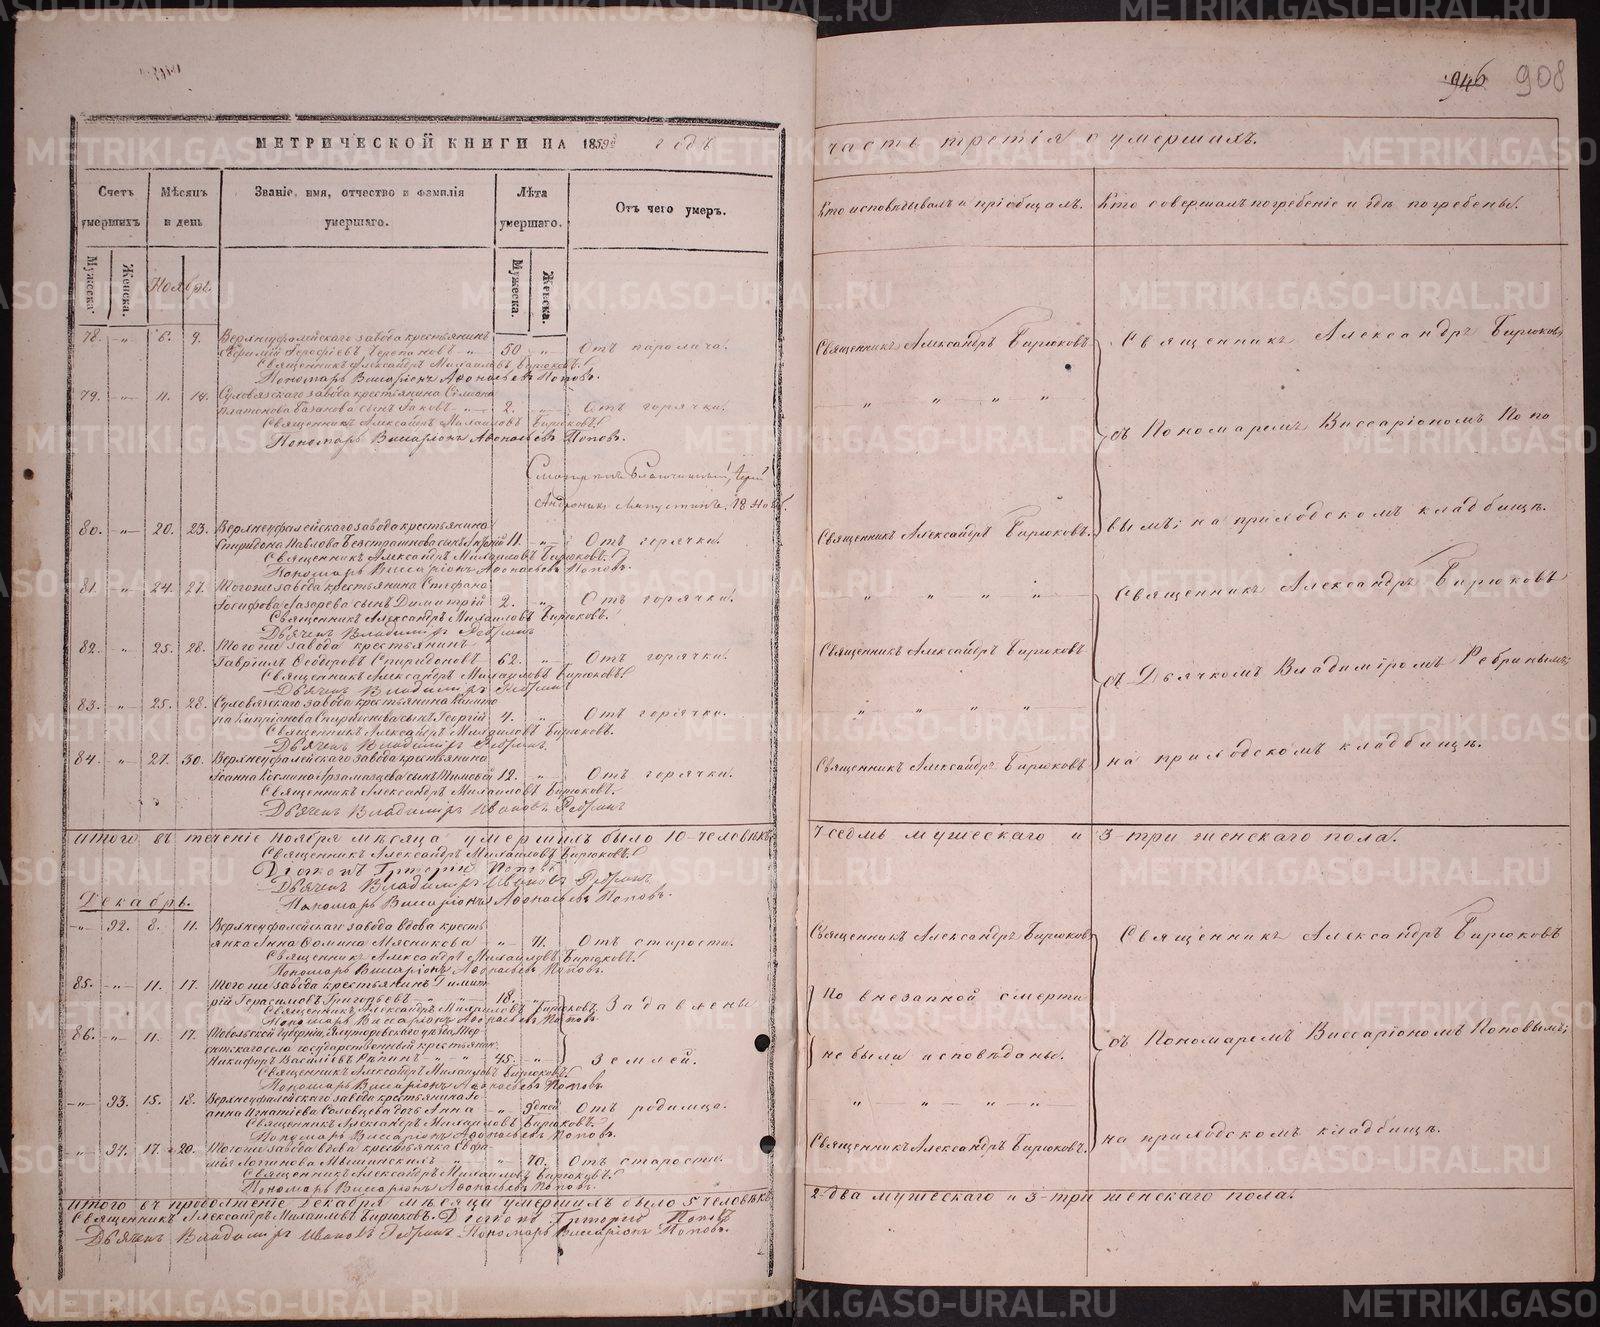 946 908
МЕТРИЧЕСКОЙ КНИГИ НА 1859й годъ
часть третія о умершихъ.
Счетъ умершихъ
Мѣсяцъ и день
Званіе, имя, отчество и фамилія умершаго.
Лѣта умершаго.
Отъ чего умеръ.
Кто исповѣдывалъ и пріобщалъ.
Кто совершалъ погребеніе и гдѣ погребены.
Мужеска.
Женска.
Ноябрь.
Мужеска.
Женска.
78. -"- 6. 9. Верхнеуфалейскаго завода крестьянинъ
Черепановъ 50 " Отъ паралича.
Священникъ Александръ Бирюковъ
Священникъ Александръ Михаиловъ Бирюковъ.
Пономарь Виссаріонъ Афонасьевъ Поповъ.
79. -"- 11. 14. Суховязскаго завода крестьянина Симеона
Платонова Базанова сынъ Іаковъ 2. " Отъ горячки.
Священникъ Александръ Михаиловъ Бирюковъ.
Пономарь Виссаріонъ Афонасьевъ Поповъ.
Андроникъ 18 Нояб.
80. -"- 20. 23. Верхнеуфалейскаго завода крестьянина
Спиридона Павлова сынъ 11. " Отъ горячки.
Священникъ Александръ Бирюковъ.
Священникъ Александръ Михаиловъ Бирюковъ.
Пономарь Виссаріонъ Афонасьевъ Поповъ.
81. " 24. 27. Тогоже завода крестьянина Стефана
Іосифова Лазарева сынъ Димитрій 2. " Отъ горячки.
Священникъ Александръ Михаиловъ Бирюковъ.
Дьячекъ Владимиръ Ребринъ
82. " 25. 28. Тогоже завода крестьянинъ
Гавріилъ Ѳеодоровъ Спиридоновъ 62. " Отъ горячки.
Священникъ Александръ Бирюковъ
Священникъ Александръ Михаиловъ Бирюковъ.
Дьячекъ Владимиръ Ребринъ
83. " 25. 28. Суховязскаго завода крестьянина
сынъ Георгій 4. " Отъ горячки.
Священникъ Александръ Михаиловъ Бирюковъ.
Дьячекъ Владимиръ Ребринъ.
84. " 27. 30. Верхнеуфалейскаго завода крестьянина
Іоанна Космина Арзамазцева сынъ Тимоѳей 12. " Отъ горячки.
Священникъ Александръ Бирюковъ
Священникъ Александръ Михаиловъ Бирюковъ.
Дьячекъ Владимиръ Ивановъ Ребринъ
Священникъ Александръ Бирюковъ
съ Пономаремъ Виссаріономъ Попо
вымъ; на приходскомъ кладбищѣ.
Священникъ Александръ Бирюковъ
съ Дьячкомъ Владиміромъ Ребринымъ;
на приходскомъ кладбищѣ.
Итого въ теченіе Ноября мѣсяца умершихъ было 10 человѣкъ:
7 седмь мужескаго и 3-три женскаго пола.
Священникъ Александръ Михаиловъ Бирюковъ.
Діаконъ Григорій Поповъ
Дьячекъ Владимиръ Ивановъ Ребринъ.
Пономарь Виссаріонъ Афонасьевъ Поповъ.
Декабрь.
-"- 92. 8. 11. Верхнеуфалейскаго завода вдова кресть
янка Анна Ѳомина Мясникова " 71. Отъ старости.
Священникъ Александръ Бирюковъ
Священникъ Александръ Михаиловъ Бирюковъ.
Пономарь Виссаріонъ Афонасьевъ Поповъ.
85. -"- 11. 17. Тогоже завода крестьянинъ Димит
рій Герасимовъ Григорьевъ 18. Задавлены
Священникъ Александръ Михаиловъ Бирюковъ.
Пономарь Виссаріонъ Афонасьевъ Поповъ.
86. -"- 11. 17. Тобольской губерніи, Ялуторовскаго уѣзда
села государственный крестьянинъ
Никифоръ Василіевъ Рѣпинъ 45. " Землей.
Священникъ Александръ Михаиловъ Бирюковъ.
Пономарь Виссаріонъ Афонасьевъ Поповъ.
По внезапной смерти
не были исповѣданы.
-"- 93. 15. 18. Верхнеуфалейскаго завода крестьянина Іо
анна Игнатіева Соловцева дочь Анна " 9 дней Отъ родимца.
Священникъ Александръ Михаиловъ Бирюковъ.
Пономарь Виссаріонъ Афонасьевъ Поповъ.
" 94. 17. 20. Тогоже завода вдова крестьянка Евфи
мія Логинова " 70. Отъ старости.
Священникъ Александръ Бирюковъ.
Священникъ Александръ Михаиловъ Бирюковъ.
Пономарь Виссаріонъ Афонасьевъ Поповъ.
Священникъ Александръ Бирюковъ
съ Пономаремъ Виссаріономъ Поповымъ;
на приходскомъ кладбищѣ.
Итого въ продолженіе Декабря мѣсяца умершихъ было 5 человѣкъ
2-два мужескаго и 3-три женскаго пола.
Священникъ Александръ Михаиловъ Бирюковъ. Діаконъ Григорій Поповъ
Дьячекъ Владимиръ Ивановъ Ребринъ Пономарь Виссаріонъ Поповъ.
METRIKI.GASO-URAL.RU